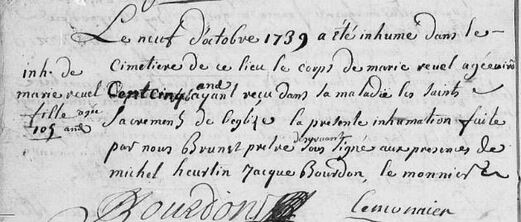 Le neuf d'octobre 1739 a été inhumé dans le
cimetiere de ce lieu le corps de marie revel agée
inh. de
marie revel
fille
105 ans
Cent cinq ans ayant reçu dans sa maladie les saints
sacremens de l'eglize la presente inhumation faite
par nous Brunet pretre desservant sous signé aux presences de
michel heurlin Jacque Bourdon, le monnier
Bourdon
Lemonnier